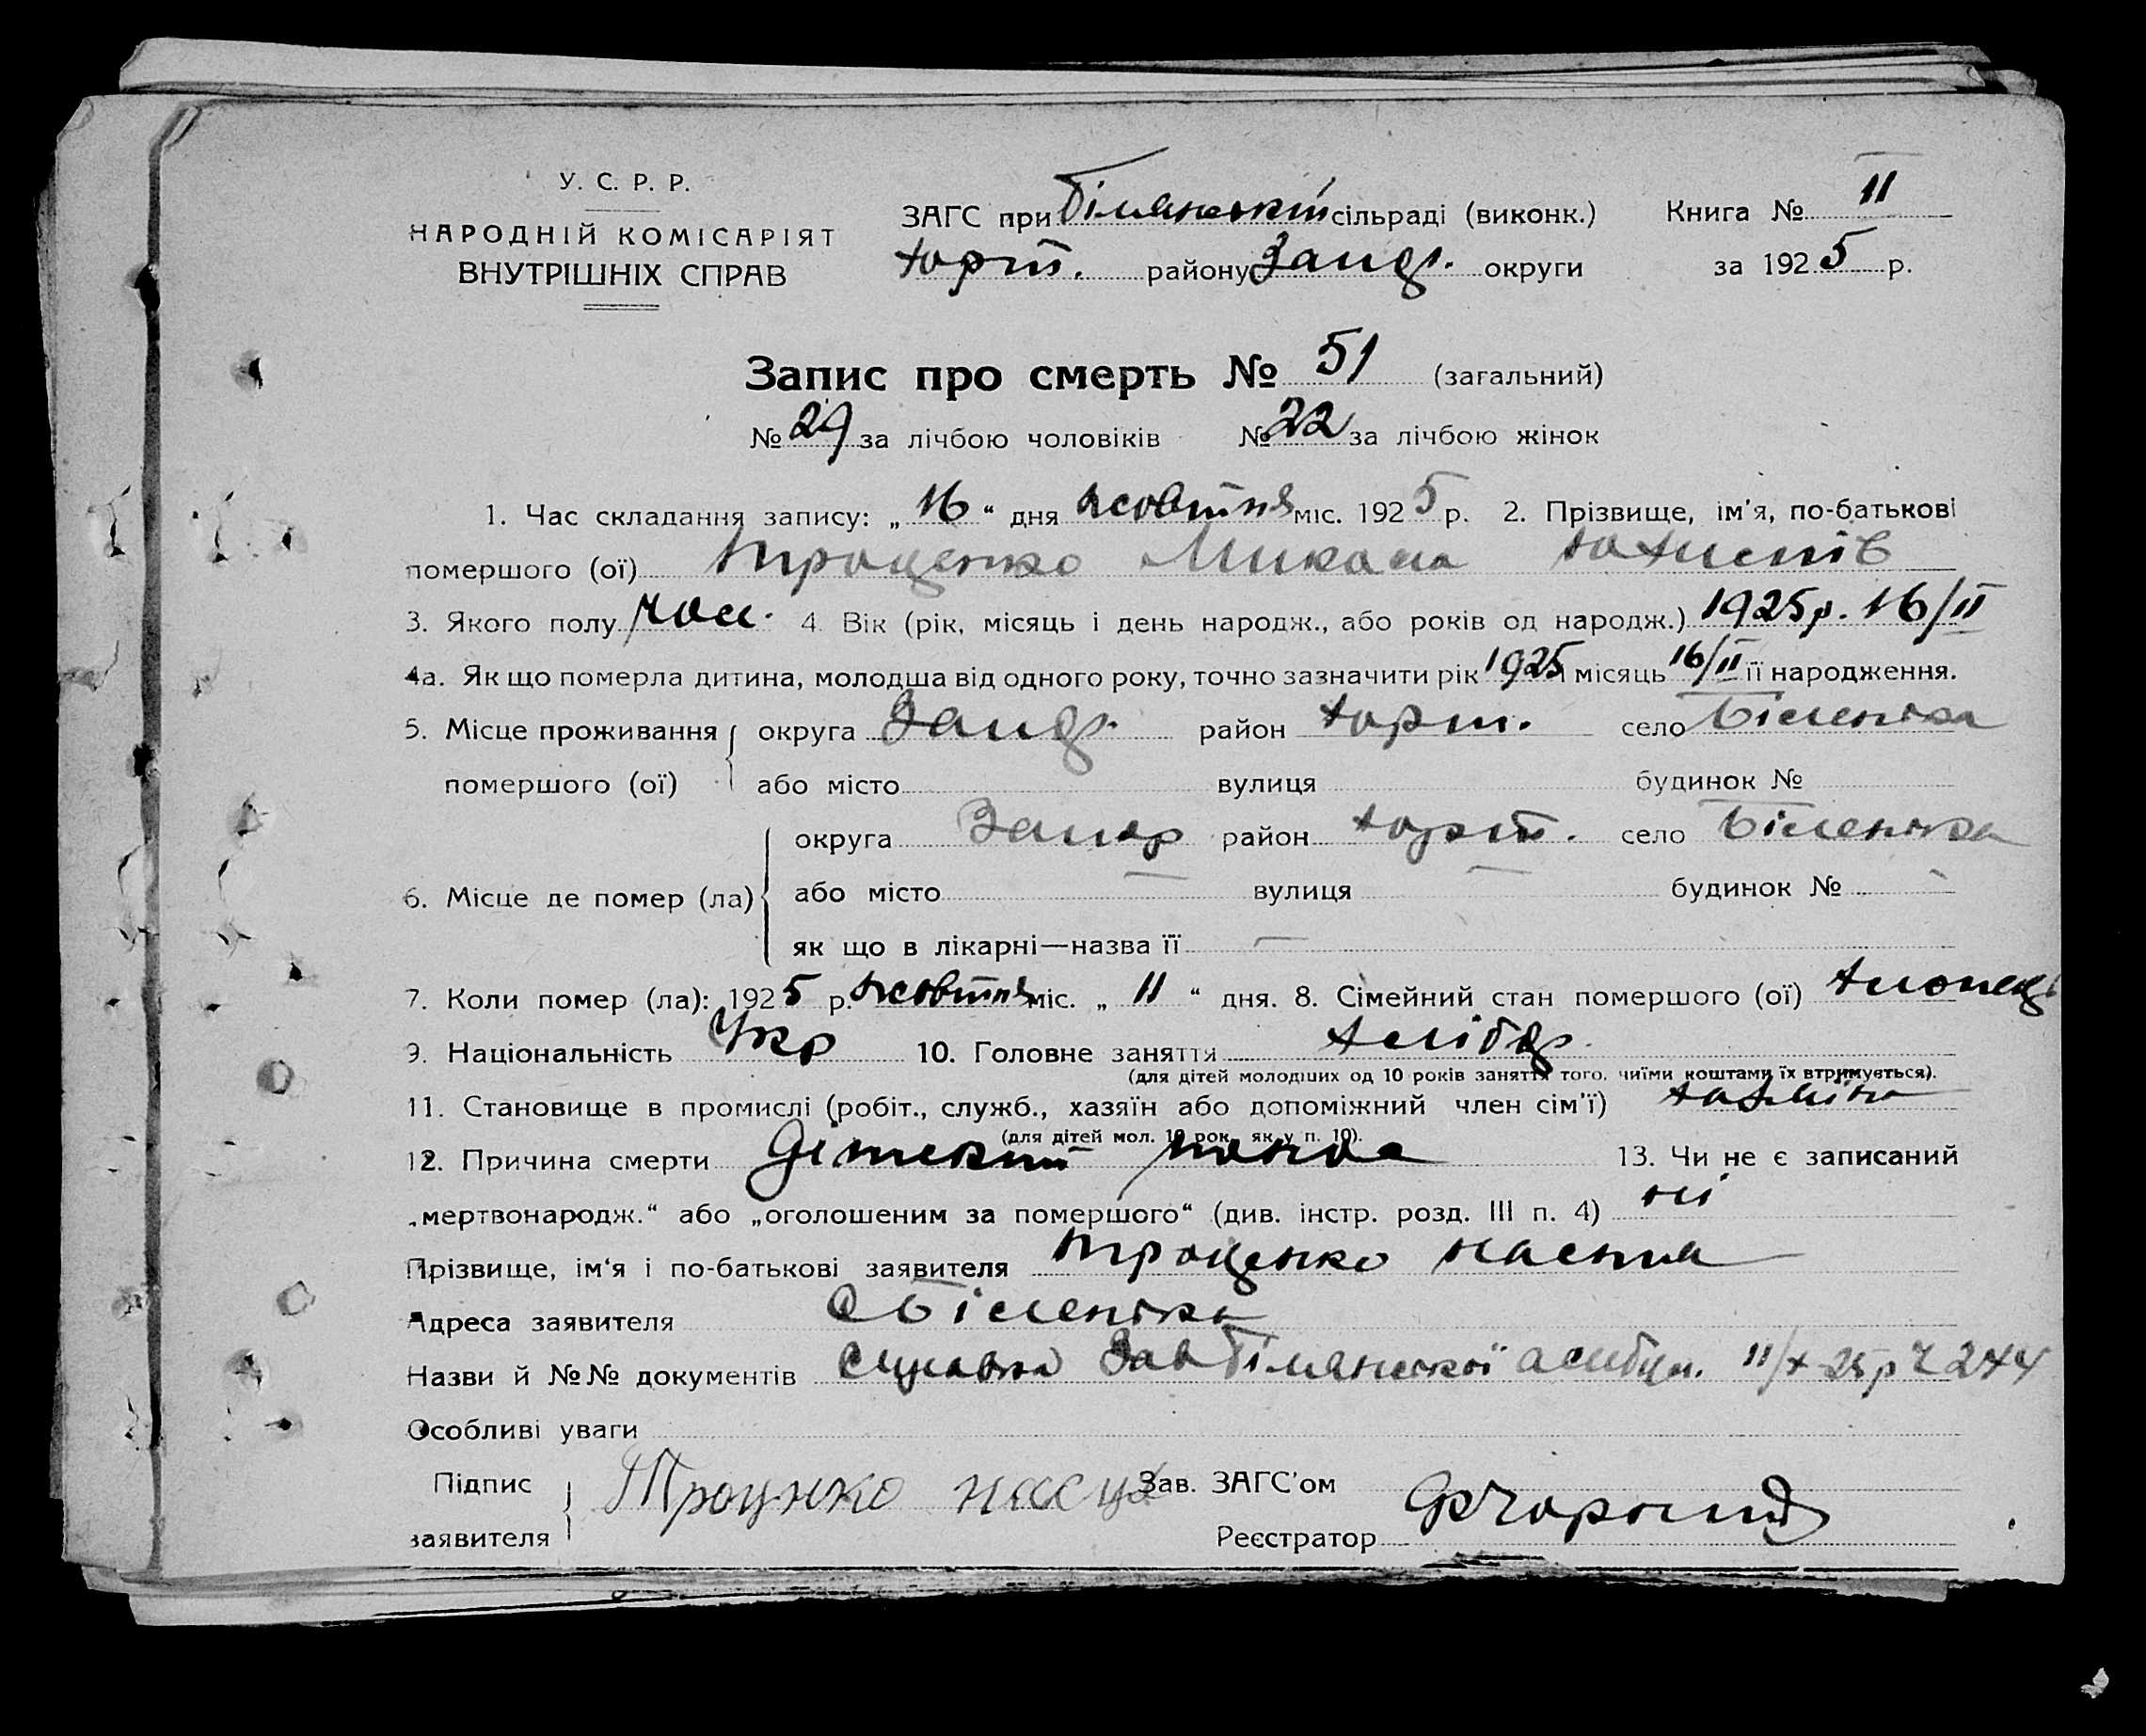 У. С. Р. Р.
НАРОДНІЙ КОМІСАРІЯТ
ВНУТРІШНІХ СПРАВ
ЗАГС при Білянській сільраді (виконк.) Книга № II
Хорт. району Запор. округи за 1925 р.
Запис про смерть № 51 (загальний)
№ 29 за лічбою чоловіків № 22 за лічбою жінок
1. Час складання запису: „16“ дня жовтня міс. 1925 р. 2. Прізвище, ім'я, по-батькові
помершого (ої) Троценко Микола
3. Якого полу чол. 4. Вік (рік, місяць і день народж., або років од народж.) 1925 р. 16/II
4а. Як що померла дитина, молодша від одного року, точно зазначити рік 1925 місяць 16/II її народження.
5. Місце проживання помершого (ої) округа Запор. район Хорт. село Біленька
або місто вулиця будинок №
6. Місце де помер (ла) округа Запор район Хорт. село Біленька
або місто — вулиця — будинок № —
як що в лікарні—назва її —
7. Коли помер (ла): 1925 р. жовтня міс. „11“ дня. 8. Сімейний стан помершого (ої) хлопець
9. Національність Укр 10. Головне заняття хлібор.
(для дітей молодших од 10 років заняття того, чиїми коштами їх втримується).
11. Становище в промислі (робіт., служб., хазяїн або допоміжний член сім'ї) хазяїн
(для дітей мол. 10 рок. як у п. 10).
12. Причина смерти Дітський понос 13. Чи не є записаний
„мертвонародж.“ або „оголошеним за помершого“ (див. інстр. розд. III п. 4) ні
Прізвище, ім'я і по-батькові заявителя Троценко Настя
Адреса заявителя с Біленька
Назви й №№ документів Справка Зав Білянської амбул. 11/X 25 р Ч 244
Особливі уваги
Підпис заявителя Троцнко Зав. ЗАГС'ом
Реєстратор